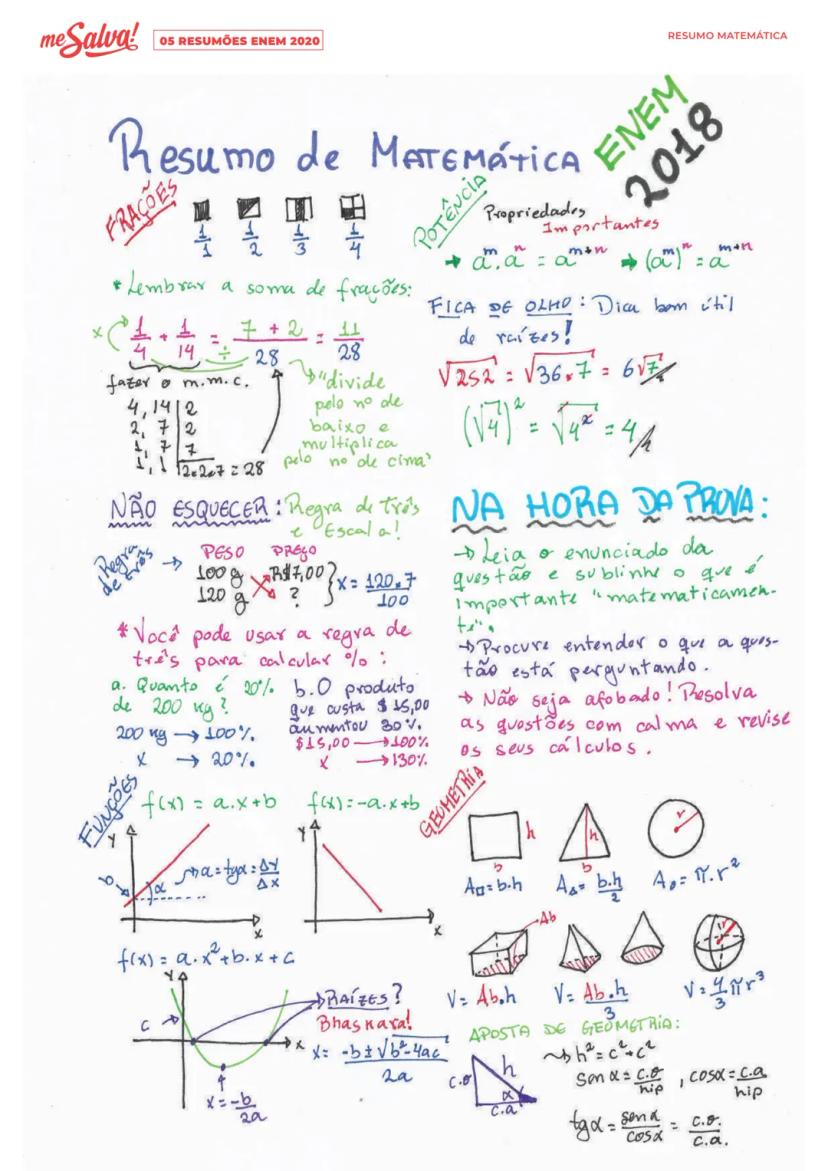 me Salva!
05 RESUMÕES ENEM 2020
RESUMO MATEMÁTICA
Resumo de MATEMÁTICA
ENEM
2018
FRAÇÕES
1/1 1/2 1/3 1/4
* Lembrar a soma de frações:
x 1/4 + 1/14 = 7 + 2 / 28 = 11/28
÷
fazer o m.m.c.
4, 14 | 2
2, 7 | 2
1, 7 | 7
1, 1 | 2.2.7 = 28
"divide
pelo nº de
baixo e
multiplica
pelo nº de cima"
POTÊNCIA
Propriedades
Importantes
→ a^m . a^n = a^(m+n) → (a^m)^n = a^(m+n)
FICA DE OLHO: Dica bem útil
de raízes!
√252 = √36.7 = 6√7
(√4)² = √4² = 4
NÃO ESQUECER: Regra de três
e Escala!
Regra
de três →
PESO PREÇO
100 g R$7,00
120 g ?
x = 120.7/100
* Você pode usar a regra de
três para calcular %:
a. Quanto é 20%
de 200 kg?
200 kg → 100%
x → 20%
b. O produto
que custa $ 15,00
aumentou 30%.
$15,00 → 100%
x → 130%
NA HORA DA PROVA:
→ Leia o enunciado da
questão e sublinhe o que é
importante "matematicamen-
te".
→ Procure entender o que a ques-
tão está perguntando.
→ Não seja afobado! Resolva
as questões com calma e revise
os seus cálculos.
FUNÇÕES
f(x) = a.x+b
f(x)=-a.x+b
Y
b
α
a = tgα = ΔY/ΔX
x
Y
x
f(x) = a.x²+b.x+c
Y
c
x
RAÍZES?
Bhaskara!
x = -b±√b²-4ac / 2a
x = -b/2a
GEOMETRIA
h
b
A□ = b.h
h
b
A△ = b.h/2
r
A○ = π.r²
Ab
V = Ab.h
V = Ab.h/3
r
V = 4/3 πr³
APOSTA DE GEOMETRIA:
c.o
h
α
c.a
h² = c²+c²
sen α = c.o/hip , cosα = c.a/hip
tgα = senα/cosα = c.o./c.a.